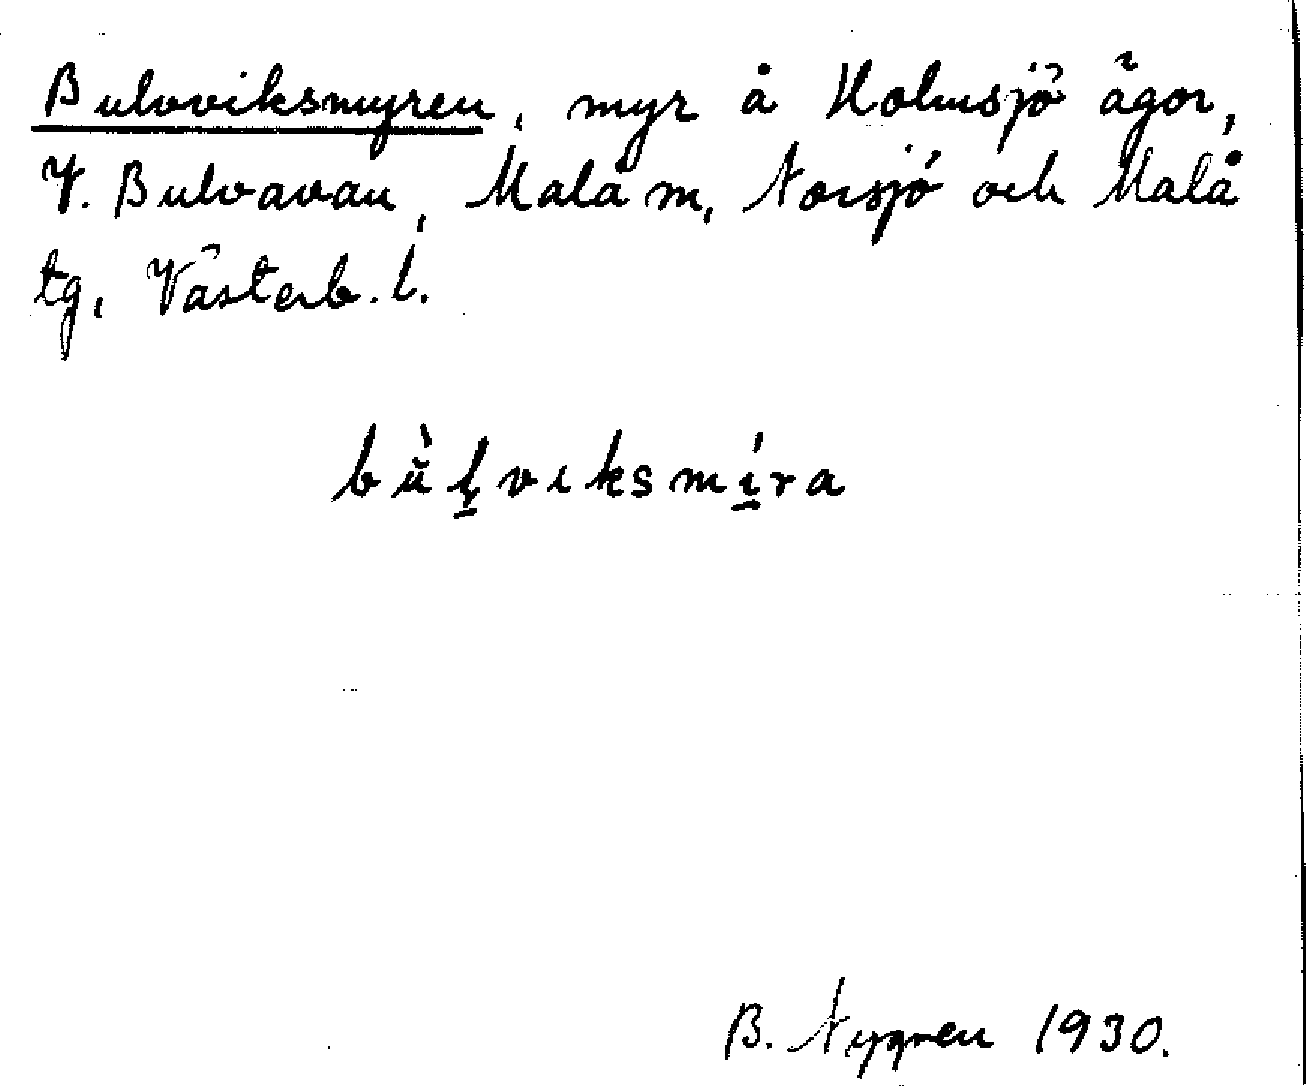 Bulvviksmyren, myr å Holmsjö ägor,
V. Bulvavan, Malå m, Norsjö och Malå
tg, Västerb. l.
bŭ̀l̯vıksmíra
B. Nygren 1930.